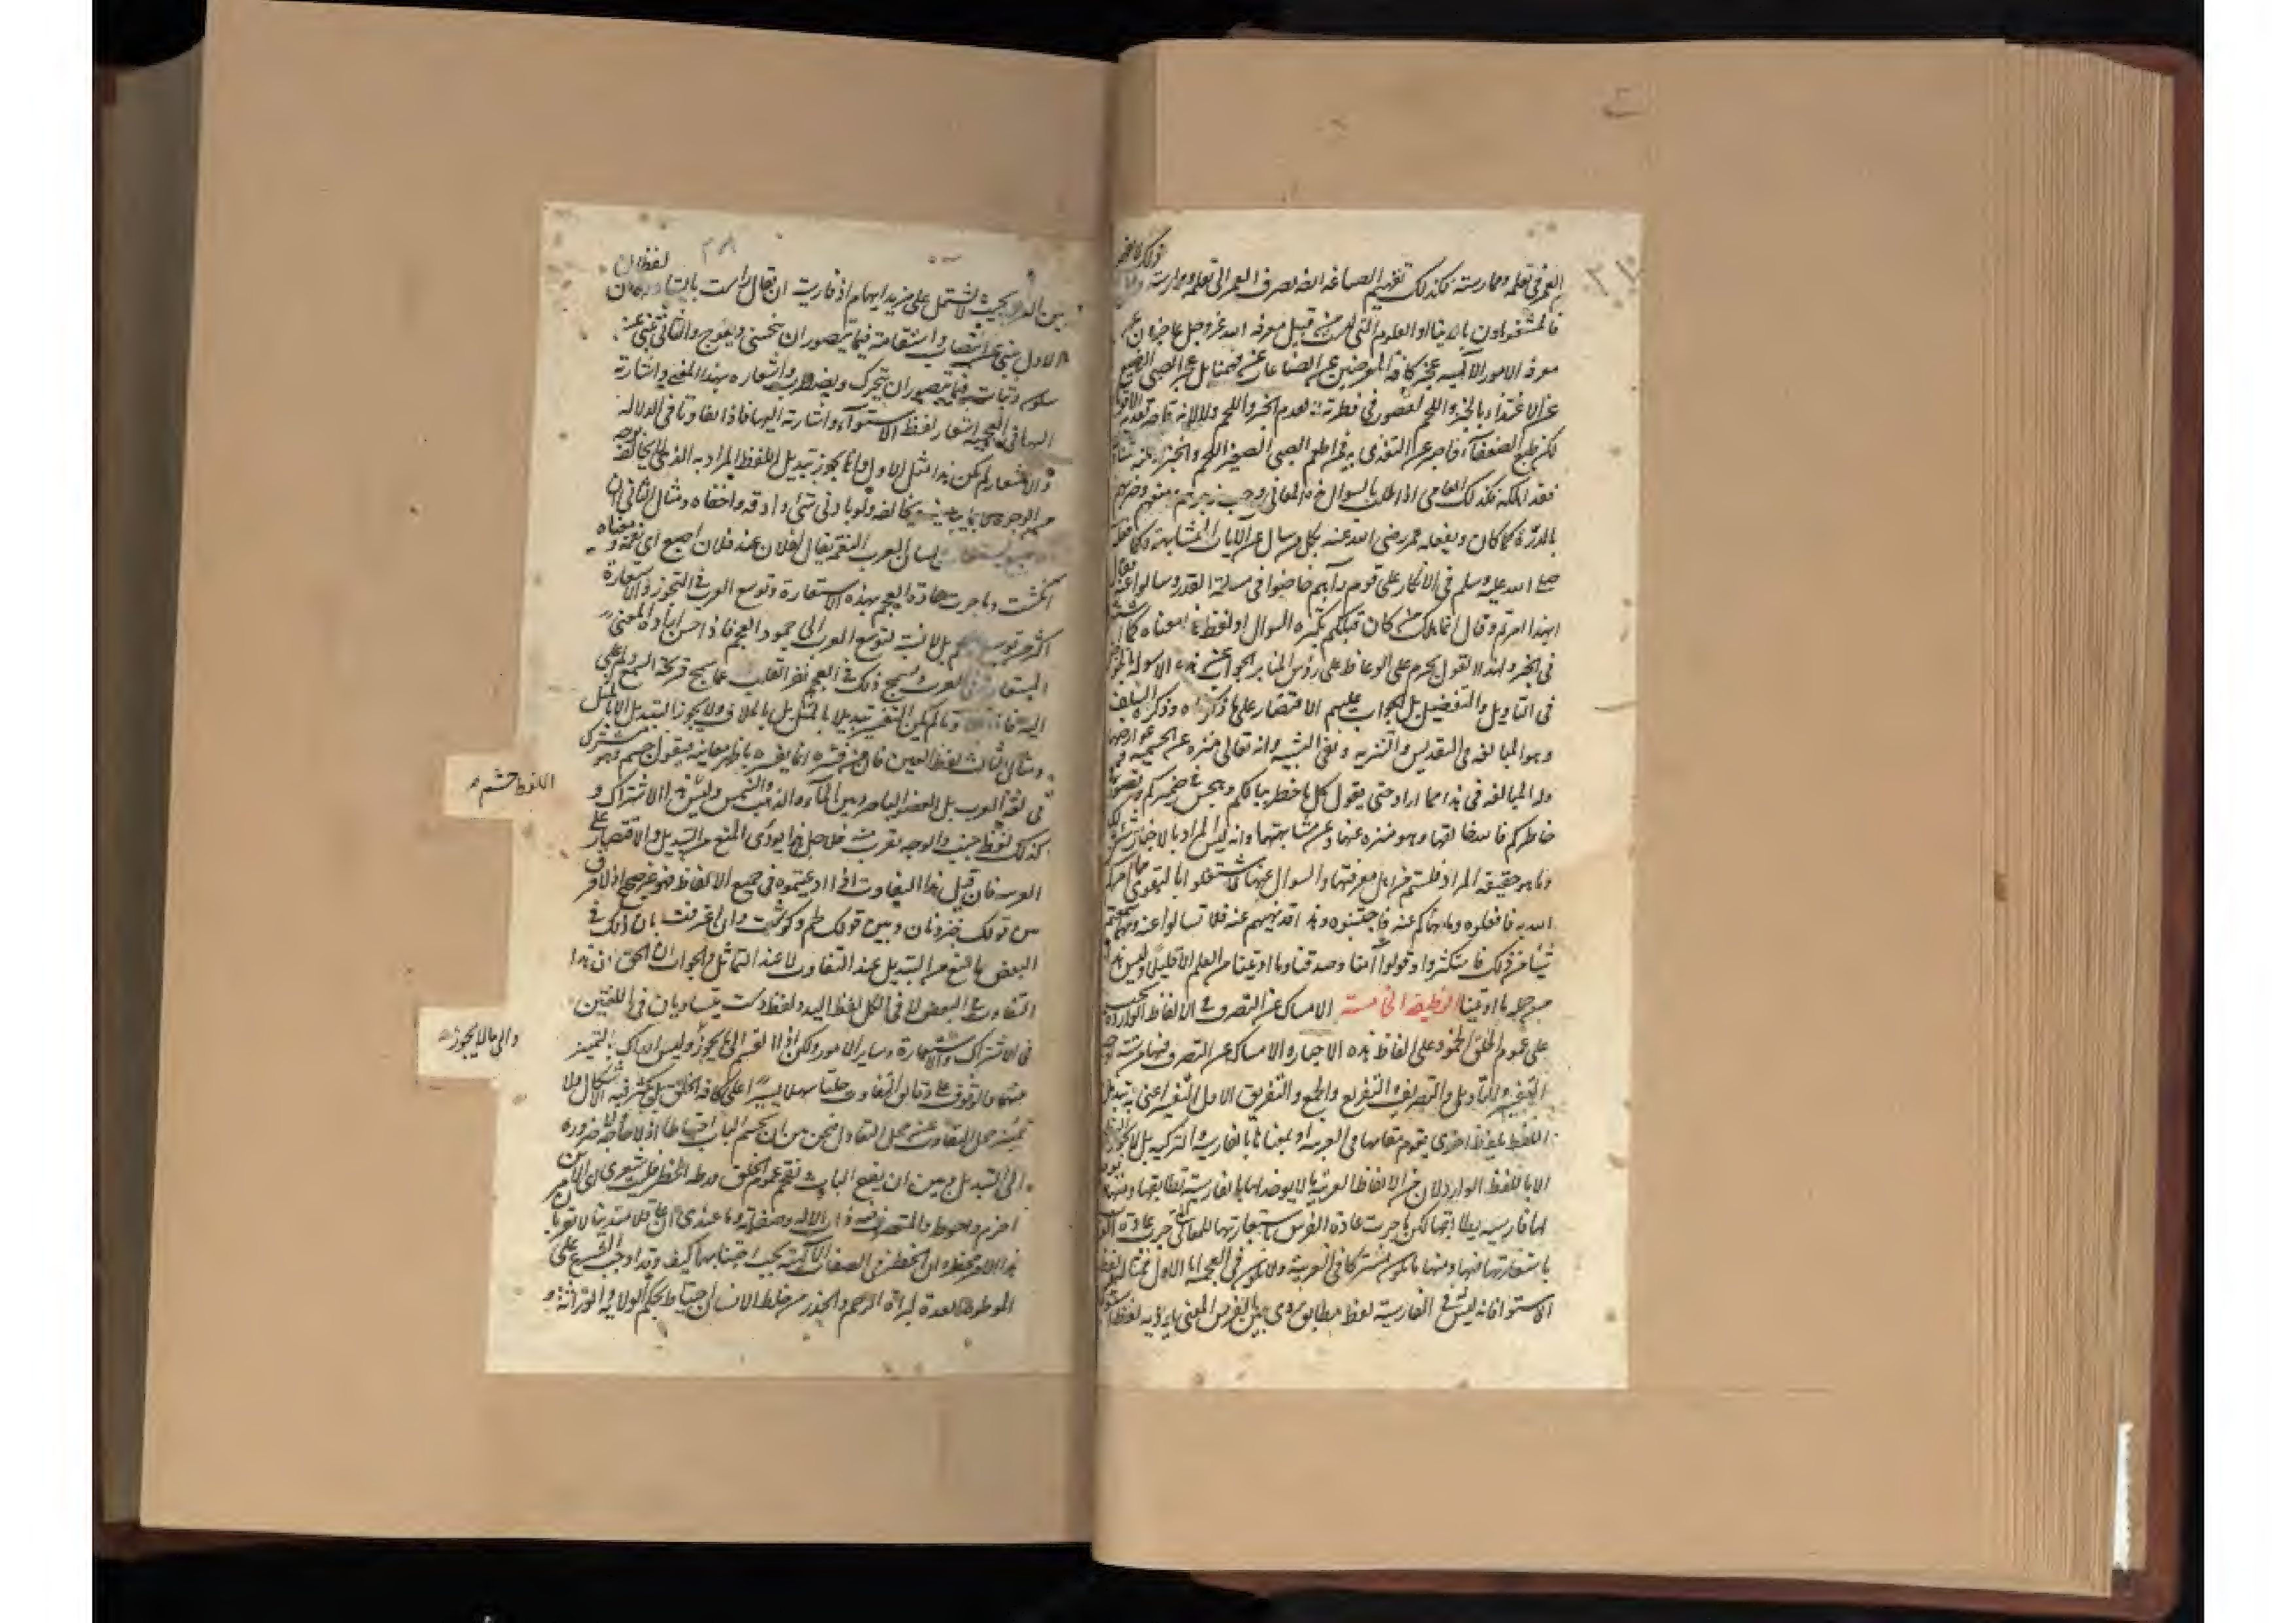 العمر في تعلمه وممارسته فكذلك تفهيم الصياغة ايضا بصرف العمر الى تعلمه وممارسته وقبل ذلك لا يفهم
فالمشغولون بالدنيا او العلوم التي ليست من قبيل معرفة الله عز وجل عاجزون عن
معرفة الامور الآلهية عجز كافة المعرضين عن الصناعات عن فهمها بل عجز الصبي الرضيع
عن الاغتذاء بالخبز واللحم لقصور في فطرته لا لعدم الخبز واللحم ولا لانه قاصر عن تغذية الاقوياء
لكن طبع الضعفآء قاصر عن التغذي به فمن اطعم الصبي الصغير اللحم والخبز او مكنه من تناوله
فقد اهلكه فكذلك العامي اذا طلب بالسؤال هذه المعاني وجب زجرهم ومنعهم وضربهم
بالدرة كما كان يفعله عمر رضي الله عنه بكل من سال عن الآيات المتشابهة وكما فعله
صلى الله عليه وسلم في الانكار على قوم رآهم خاضوا في مسئلة القدر وسألوا عنه فقال
ابهذا امرتم وقال انما هلك من كان قبلكم بكثرة السوال او لفظ هذا معناه كما اشتهر
في الخبر ولهذا اقول يحرم على الوعاظ على رؤس المنابر الجواب عن هذه الاسولة بالخوض
في التاويل والتفصيل بل الواجب عليهم الاقتصار على ما ذكرناه وذكره السلف
وهو المبالغة في التقديس والتنزيه ونفي التشبيه وانه تعالى منزه عن الجسمية وعوارضها
وله المبالغة في هذا بما اراد حتى يقول كل ما خطر ببالكم وهجس في ضميركم وتصور في
خاطركم فانه خالقها وهو منزه عنها وعن مشابهتها وانه ليس المراد بالاخبار شيئ من ذلك
واما هو حقيقة المراد فلستم من اهل معرفتها والسوال عنها فاشتغلوا بالتقوى فما امركم
الله به فافعلوه وما نهاكم عنه فاجتنبوه وهذا قد نهيتم عنه فلا تسالوا عنه ومهما سمعتم
شيئا من ذلك فاسكتوا وقولوا آمنا وصدقنا وما اوتينا من العلم الا قليلا وليس هذا
من جملة ما اوتينا الوظيفة الخامسة الامساك عن التصرف في الالفاظ الواردة يجب
على عموم الخلق الجمود على الفاظ هذه الاخبار والامساك عن التصرف فيها من ستة اوجه
التفسير والتأويل والتصريف والتفريع والجمع والتفريق الاول التفسير اعني به تبديل
اللفظ بلفظ اخرى يقوم مقامها في العربية او بمعناها بالفارسية او التركية بل لا يجوز النطق
الا باللفظ الوارد لان من الالفاظ العربية ما لا يوجد لها بالفارسية تطابقها ومنها ما يوجد
لها فارسية يطابقها لكن ما جرت عادة الفرس باستعارتها للمعاني التي جرت عادة العرب
باستعارتها فيها ومنها ما يكون مشتركا في العربية ولا يكون في العجمية اما الاول فمثاله لفظ
الاستواء فانه ليس في الفارسية لفظ مطابق يودي بين الفرس المعنى ما يؤديه لفظ الاستواء
لفظان
بين العرب بحيث لا يشتمل على مزيد ايهام اذ فارسيته ان يقال راست بايستاد وهذان
الاول ينبئ عن انتصاب واستقامة فيما يتصور ان ينحني ويعوج والثاني ينبئ عن
سكون وثبات فيما يتصور ان يتحرك ويضطرب واشعاره بهذا المعنى واشارته
اليها في العجمية اشعار لفظ الاستوآء واشارته اليها فاذا تفاوتا في الدلالة
والاشعار لم يكن هذا مثل الاول وانما يجوز تبديل اللفظ المراد به الذي لا يخالفه بوجه
من الوجوه لا بما يباينه ويخالفه ولو بادنى شئ وادقه واخفاه ومثال الثاني ان
الاصبع يستعار في لسان العرب النعمة يقال لفلان عند فلان اصبع اي نعمة ومعناه
انگشت وما جرت عادة العجم بهذه الاستعارة وتوسع العرب في التجوز والاستعارة
اكثر من توسع العجم بل لا نسبة لتوسع العرب الى جمود العجم فاذا حسن ايراد المعنى
المستعار في العرب وسمج ذلك في العجم نفر القلب عما سمج
ومثال الثالث لفظ العين فان من فسره انما يفسره باظهر معانيه فيقول چشم وهو مشترك
في لغة العرب بين العضو الباصر وبين المآء والذهب والشمس وليس هذا الاشتراك
اللفظ چشم
كذلك لفظ الجنب والوجه يقرب منه فلاجل هذا نودي المنع من التبديل والاقتصار على
العربية فان قيل هذا التفاوت ان ادعيتموه في جميع الالفاظ فهو غير صحيح اذ لا فرق
بين قولك خبز ونان وبين قولك لحم وگوشت وان اعترفت بان ذلك في
البعض فامنع من التبديل عند التفاوت لا عند التماثل والجواب ان الحق ان هذا
التفاوت في البعض لا في الكل لفظ اليد ولفظ دست يتساويان في اللغتين
في الاشتراك والاستعارة وساير الامور ولكن اذا انقسم الى ما يجوز وليس ادراك التمييز
والى ما لا يجوز
بينهما والوقوف على دقايق التفاوت جليا سهلا يسيرا على كافة الخلق بل يكثر فيه الاشكال ولا
يتميز محل التفاوت عن محل التعادل فنحن بين ان نحسم الباب احتياطا اذ لا حاجة ولا ضرورة
الى التبديل وبين ان نفتح الباب ونقحم عموم الخلق ورطة الخطر فليت شعري اي الامرين
احزم واحوط والمتصرف فيه ذات الاله وصفاته وما عندي ان عاقلا متدينا لا يقر بان
هذا الامر مخطر وان الخطر في الصفات الآلهية يجب اجتنابها كيف وقد اوجب الشرع على
الموطوءة العدة لبرآة الرحم والحذر من خلط الانساب احتياطا لحكم الولاية والوراثة و